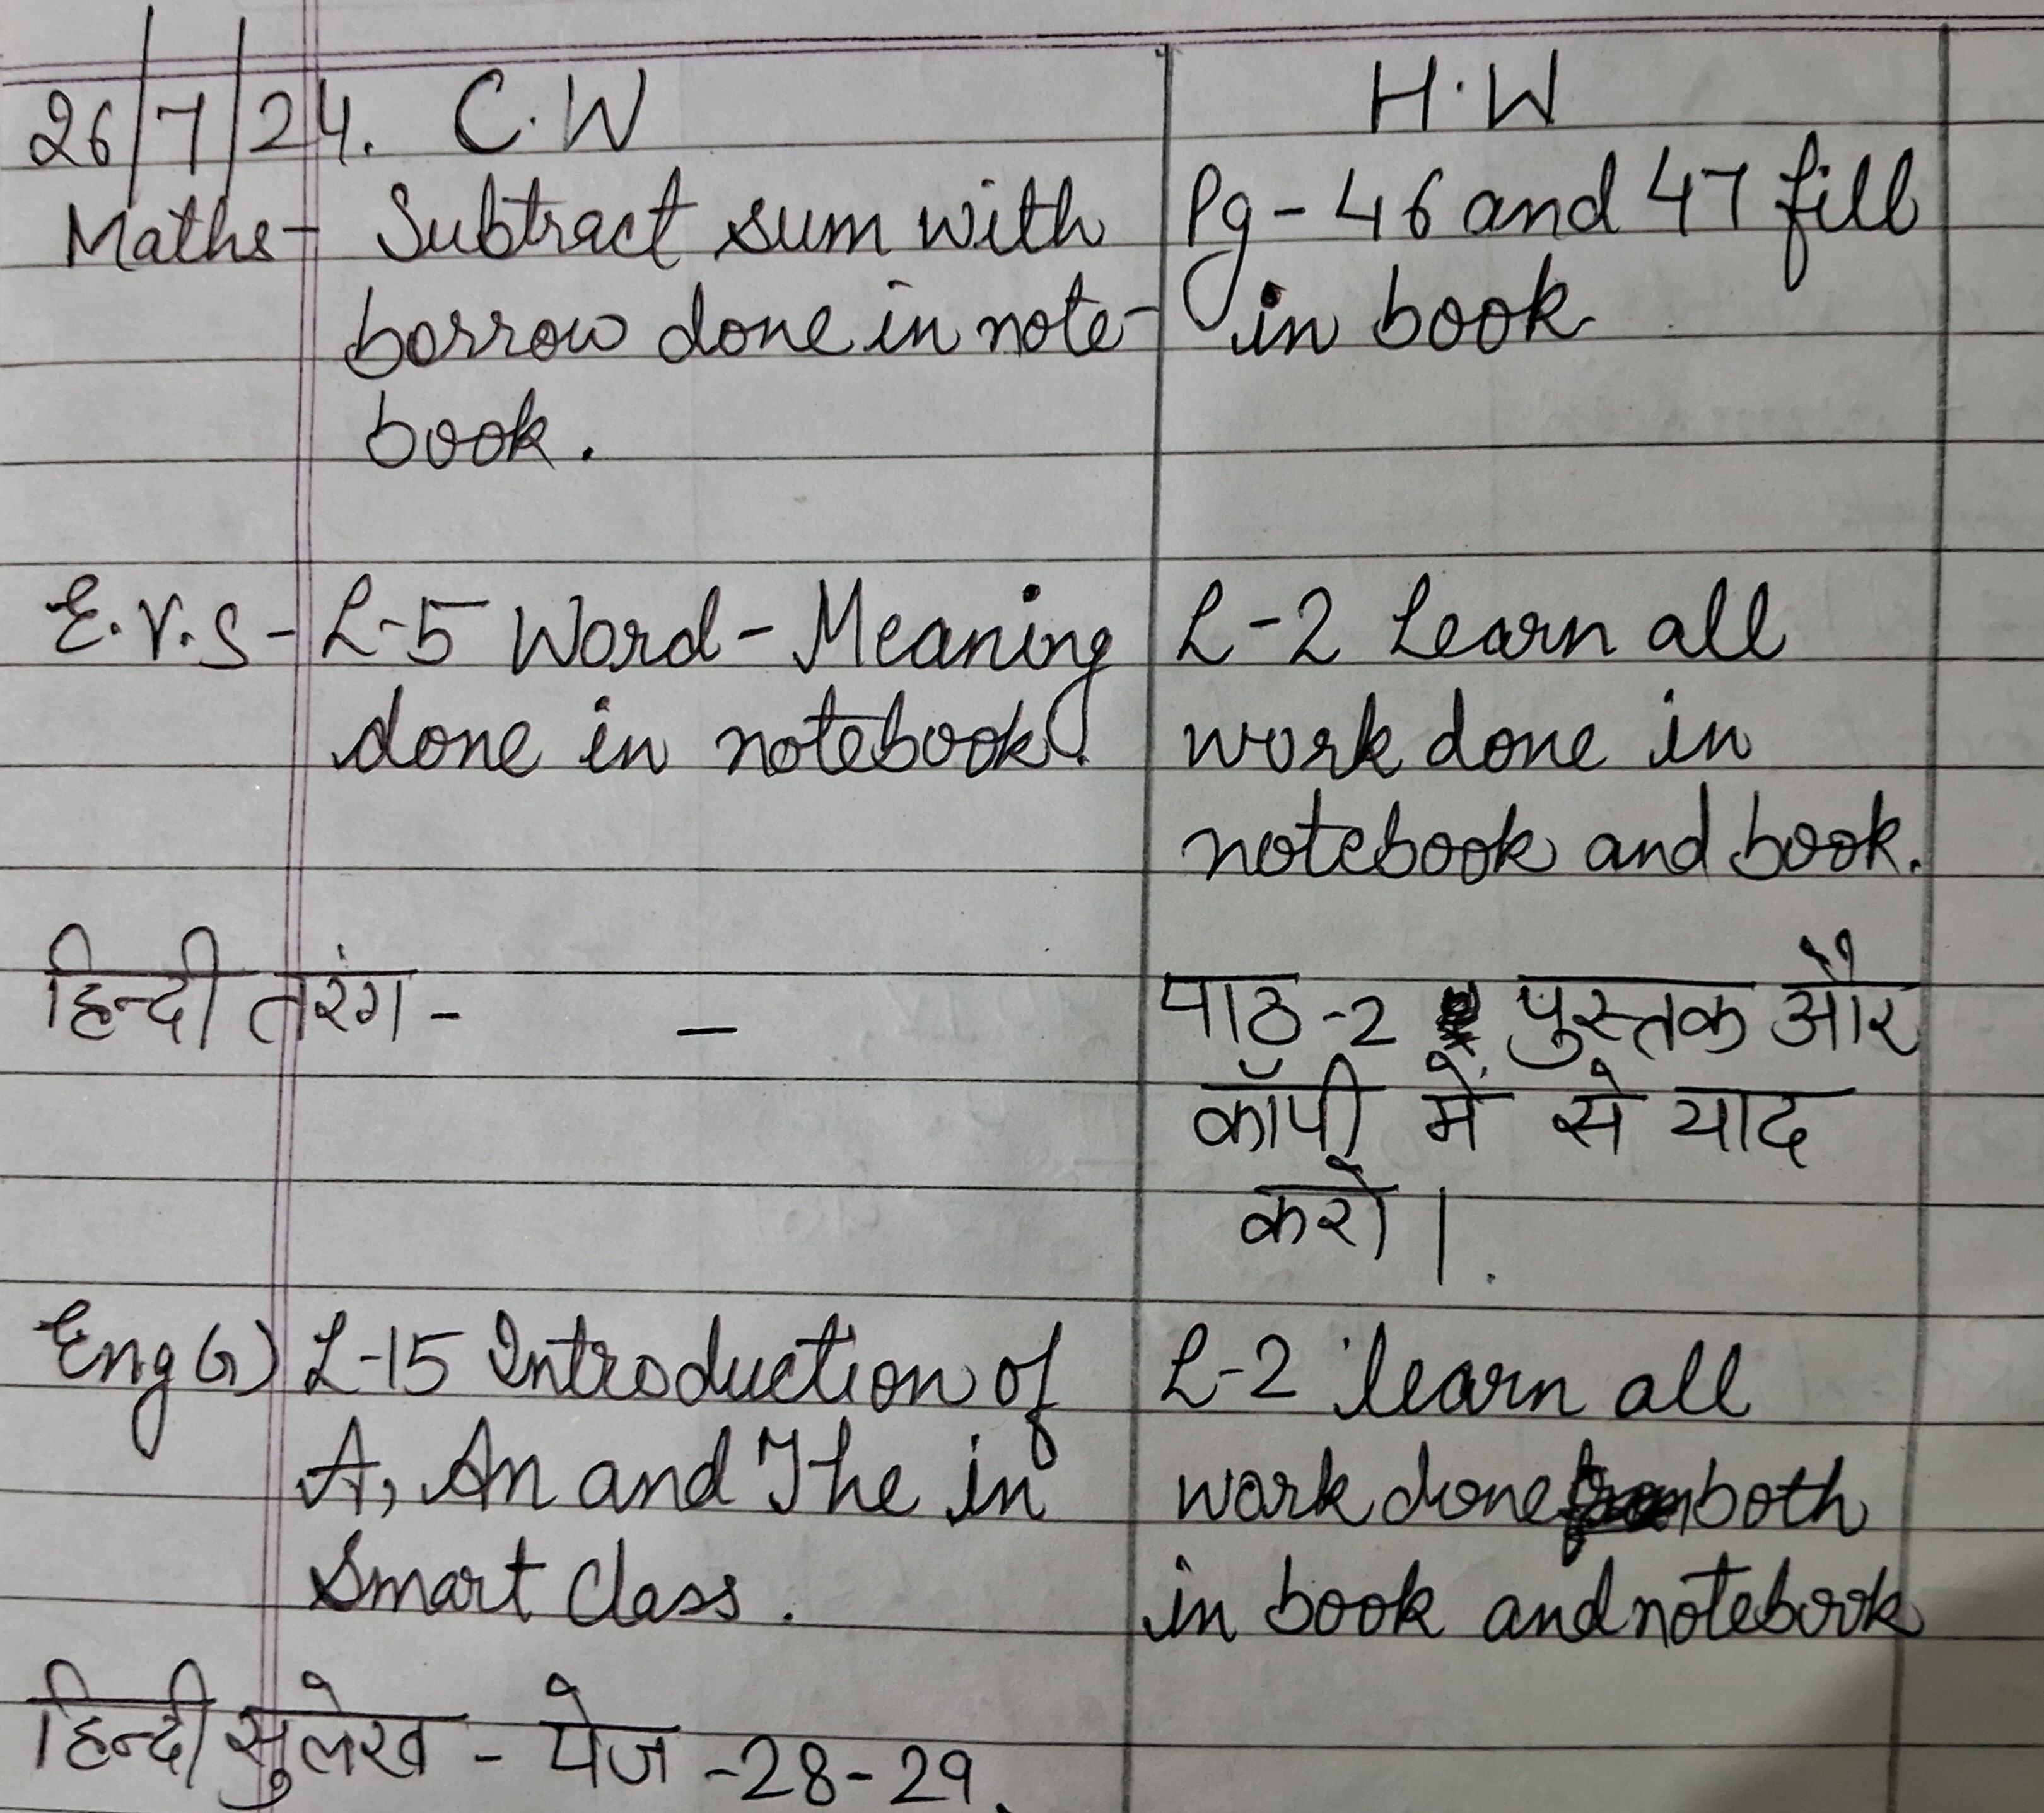 26/7/24. C.W H.W
Maths- Subtract sum with Pg-46 and 47 fill
borrow done in note- in book
book.
E.V.S- L-5 Word-Meaning L-2 Learn all
done in notebook. work done in
notebook and book.
हिन्दी तरंग- - पाठ-2 पुस्तक और
कॉपी में से याद
करो।
Eng G) L-15 Introduction of L-2 learn all
A, An and The in work done both
Smart Class. in book and notebook
हिन्दी सुलेख - पेज -28-29.